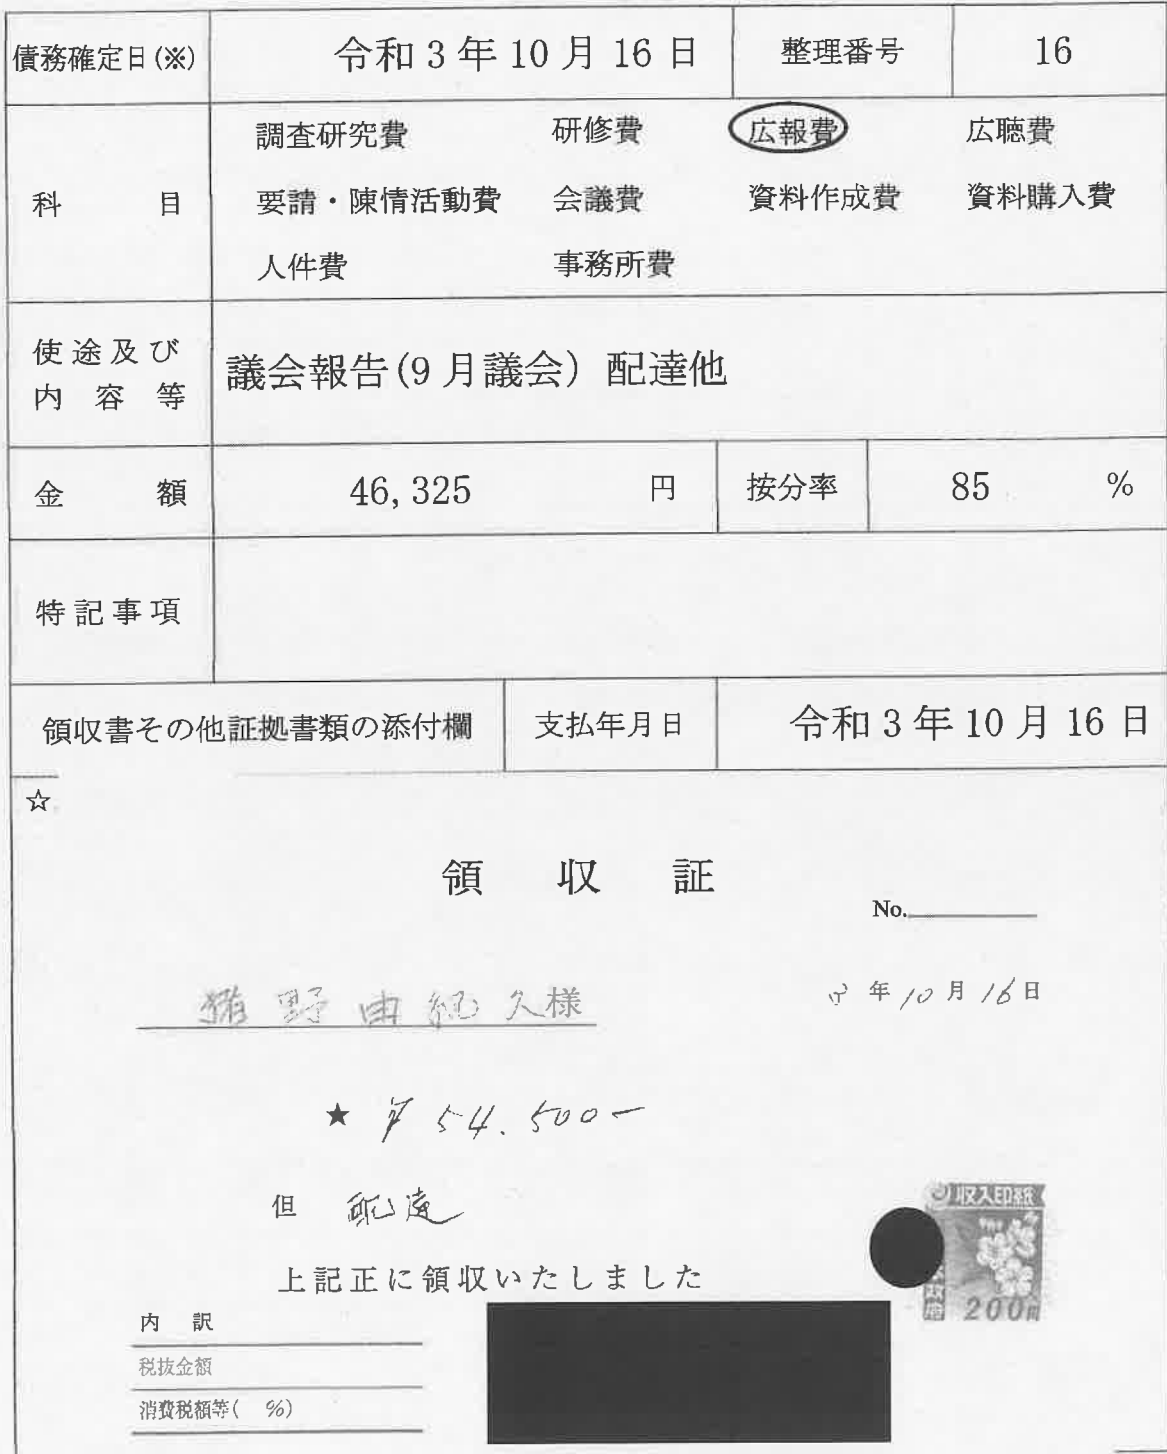 債務確定日(※) 令和3年10月16日 整理番号 16
科目 調査研究費 研修費 広報費 広聴費
要請・陳情活動費 会議費 資料作成費 資料購入費
人件費 事務所費
使途及び内容等 議会報告(9月議会)配達他
金額 46,325 円 按分率 85 %
特記事項
領収書その他証拠書類の添付欄 支払年月日 令和3年10月16日
☆
領収証
No.
猪野由紀久様 年10月16日
★ ¥54.500-
但 配達
上記正に領収いたしました
収入印紙
200円
内訳
税抜金額
消費税額等( %)